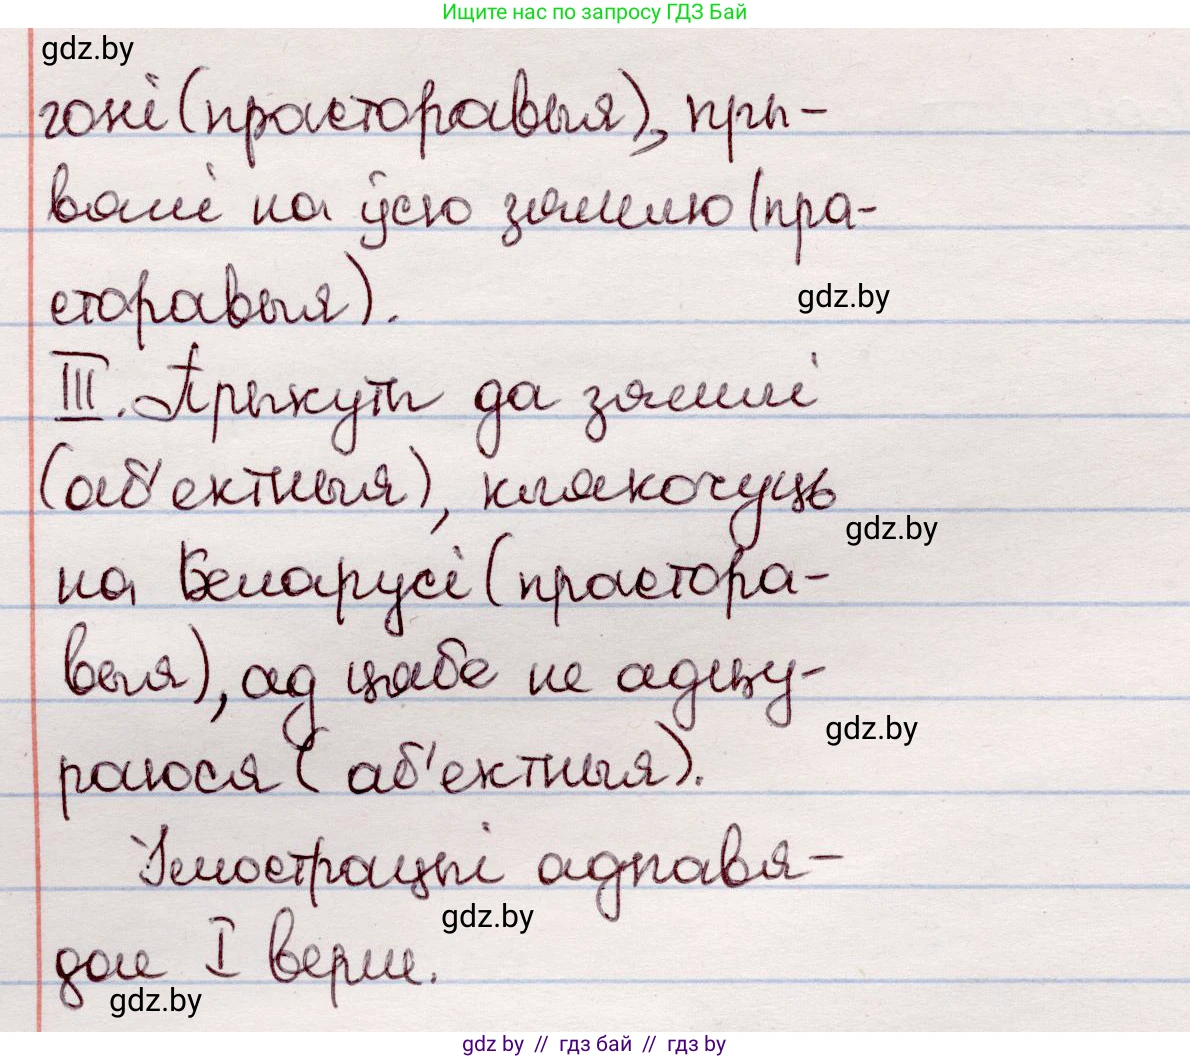 Ищите нас по запросу ГДЗ Бай
gdz.by
гоні (прасторавыя), пры-
валі на ўсю зямлю (пра-
gdz.by
сторавыя).
III. Прыкуты да зямлі
(аб'ектныя), клякочуць
gdz.by
на Беларусі (прастора-
выя), ад цябе не адцу-
gdz.by
раюся (аб'ектныя).
Ілюстрацыі адпавя-
gdz.by
дае I верш.
gdz.by
gdz by // гдз бай // гдз by